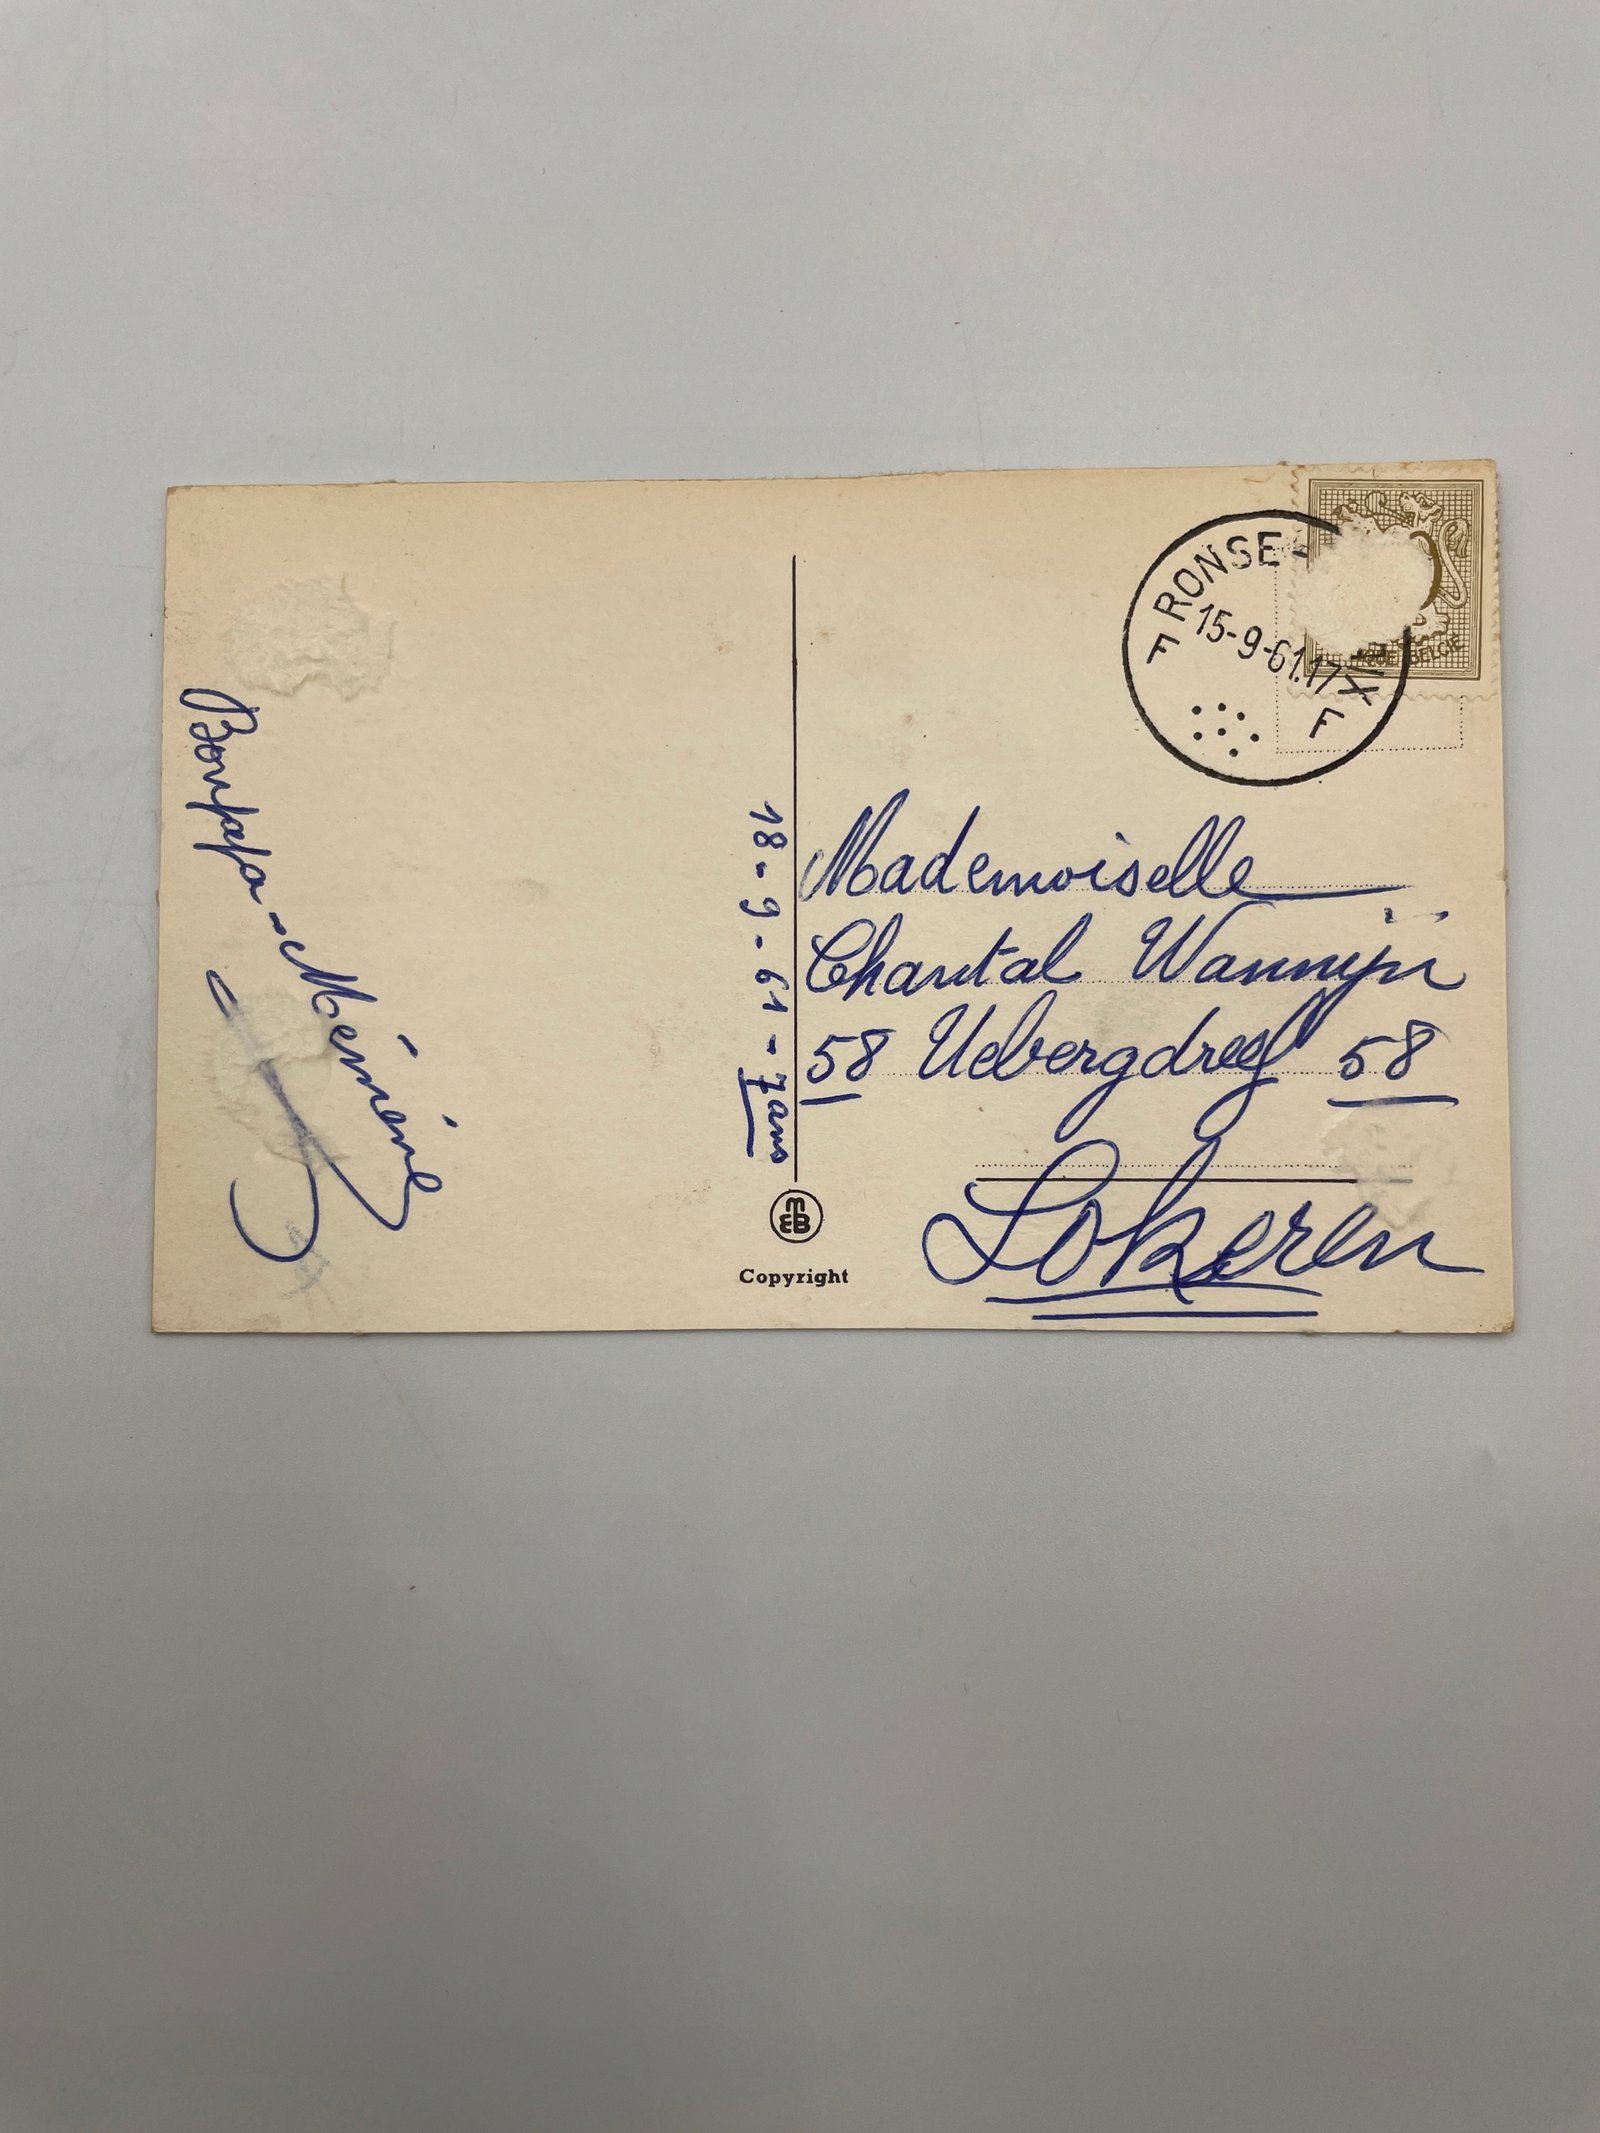 RONSE -
15-9-61.17
F
F
BELGIE
Bonpapa - Mémémé
18-9-61-7 ans
Mademoiselle
Chantal Wannijn
58 Uebergdreef 58
Lokeren
MEB
Copyright